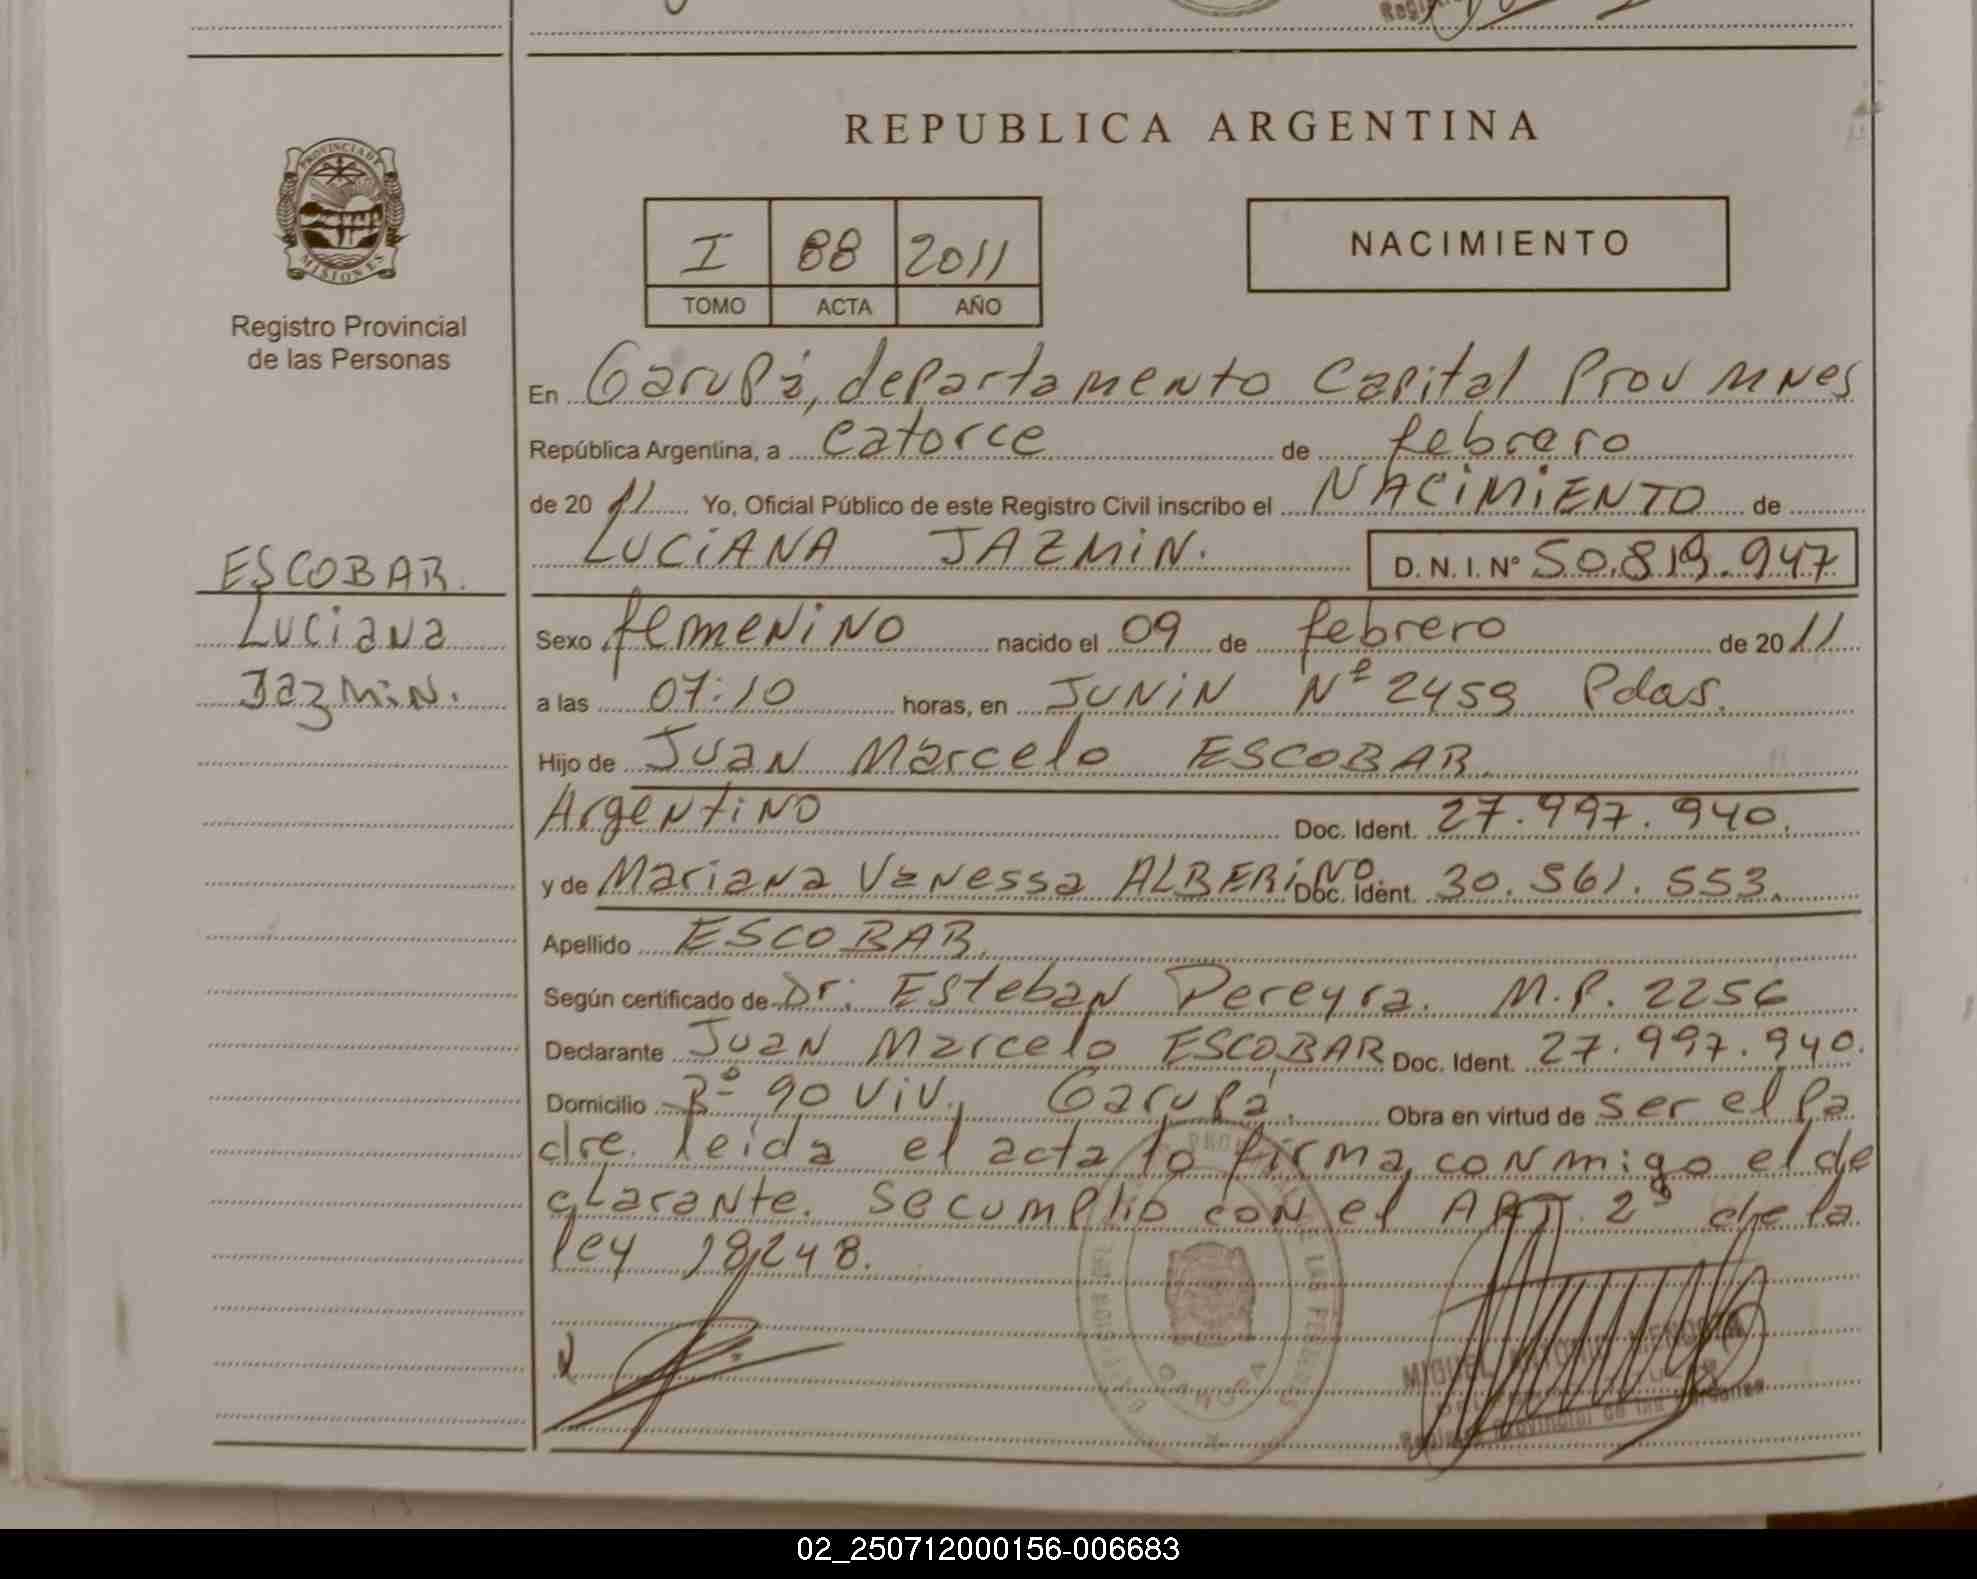 REPUBLICA ARGENTINA
PROVINCIA DE
MISIONES
Registro Provincial
de las Personas
I 88 2011
TOMO ACTA AÑO
NACIMIENTO
En Garupá, departamento Capital Prov Mnes
República Argentina, a catorce de febrero
de 20 11 Yo, Oficial Público de este Registro Civil inscribo el NACIMIENTO de
LUCIANA JAZMIN. D.N.I. Nº 50.819.947
ESCOBAR.
Luciana
Jazmin.
Sexo femenino nacido el 09 de febrero de 20 11
a las 07:10 horas, en JUNIN Nº 2459 Pdas.
Hijo de Juan Marcelo ESCOBAR
Argentino Doc. Ident. 27.997.940.
y de Mariana Vanessa ALBERINO Doc. Ident. 30.561.553.
Apellido ESCOBAR.
Según certificado de Dr: Esteban Pereyra. M.P. 2256
Declarante Juan Marcelo ESCOBAR Doc. Ident. 27.997.940.
Domicilio Bº 90 viv., Garupá. Obra en virtud de ser el pa
dre. leida el acta lo firma conmigo el de
clarante. Se cumplio con el ART. 2º de la
ley 18248.
MIGUEL ANTONIO
Provincial de las Personas
02_250712000156-006683